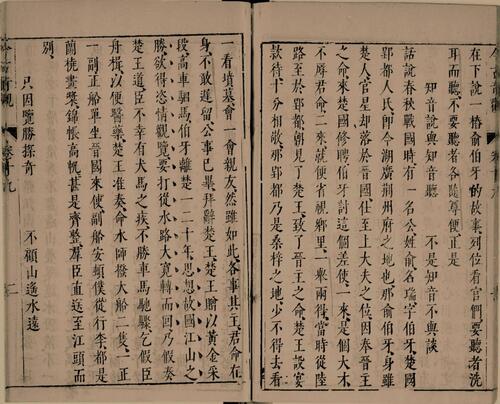 在下說一椿俞伯牙的故事列位看官們要聽者洗
耳而聽不要聽者各隨尊便正是
知音說與知音聽　不是知音不與談
話說春秋戰國時有一名公姓俞名瑞字伯牙楚國
郢都人氏即今湖廣荊州府之地也那俞伯牙身雖
楚人官星却落於晉國仕至上大夫之位因奉晉主
之命來楚國修聘伯牙討這個差使一來是個大才
不辱君命二來就便省視鄉里一舉兩得當時從陸
路至於郢都朝見了楚王致了晉主之命楚王設宴
款待十分相敬那郢都乃是桑梓之地少不得去看
一看墳墓會一會親友然雖如此各事其主君命在
身不敢遲留公事已畢拜辭楚王楚王贈以黃金采
段高車駟馬伯牙離楚一十二年思想故國江山之
勝欲得恣情觀覽要打從水路大寬轉而回乃假奏
楚王道臣不幸有犬馬之疾不勝車馬馳驟乞假臣
舟楫以便醫藥楚王准奏命水師撥大船二隻一正
一副正船單坐晉國來使副船安頓僕從行李都是
蘭橈畫槳錦帳高帆甚是齊整羣臣直送至江頭而
別
只因覽勝探奇　不顧山遙水遠